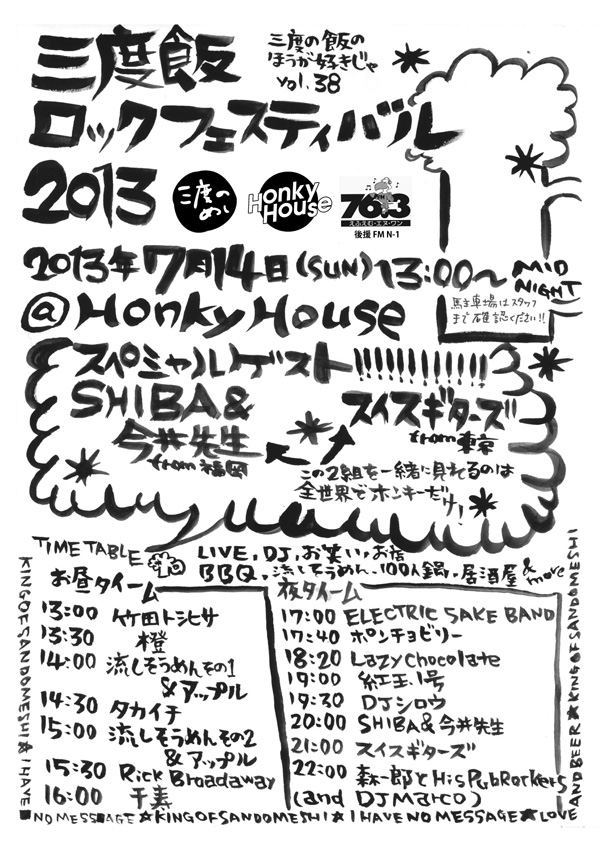 三度飯
三度の飯の
ほうが好きじゃ
vol.38
ロックフェスティバル
2013
三度の
めし
Honky
House
76.3
えふえむ・エヌ・ワン
後援 FM N-1
2013年7月14日(SUN)13:00〜MID
NIGHT
@HonkyHouse
駐車場はスタッフ
まで確認ください!!
スペシャルゲスト!!!!!!!!!!!
SHIBA&
今井先生
from福岡
スイスギターズ
from東京
この2組を一緒に見れるのは
全世界でホンキーだけ!
TIME TABLE
LIVE、DJ、お笑い、お店
BBQ、流しそうめん、100人鍋、居酒屋 & more
お昼タイム
13:00 竹田トシヒサ
13:30 橙
14:00 流しそうめんその1
&アップル
14:30 タカイチ
15:00 流しそうめんその2
&アップル
15:30 Rick Broadaway
16:00 千寿
夜タイム
17:00 ELECTRIC SAKE BAND
17:40 ポンチョビリー
18:20 Lazy Chocolate
19:00 紅王.1号
19:30 DJシロウ
20:00 SHIBA&今井先生
21:00 スイスギターズ
22:00 森一郎とHisPubRockers
(and DJ Marco)
KING OF SANDOMESHI & I HAVE
NO MESSAGE ☆ KING OF SANDOMESHI ☆ I HAVE NO MESSAGE ☆ LOVE
AND BEER ☆ KING OF SANDOMESHI